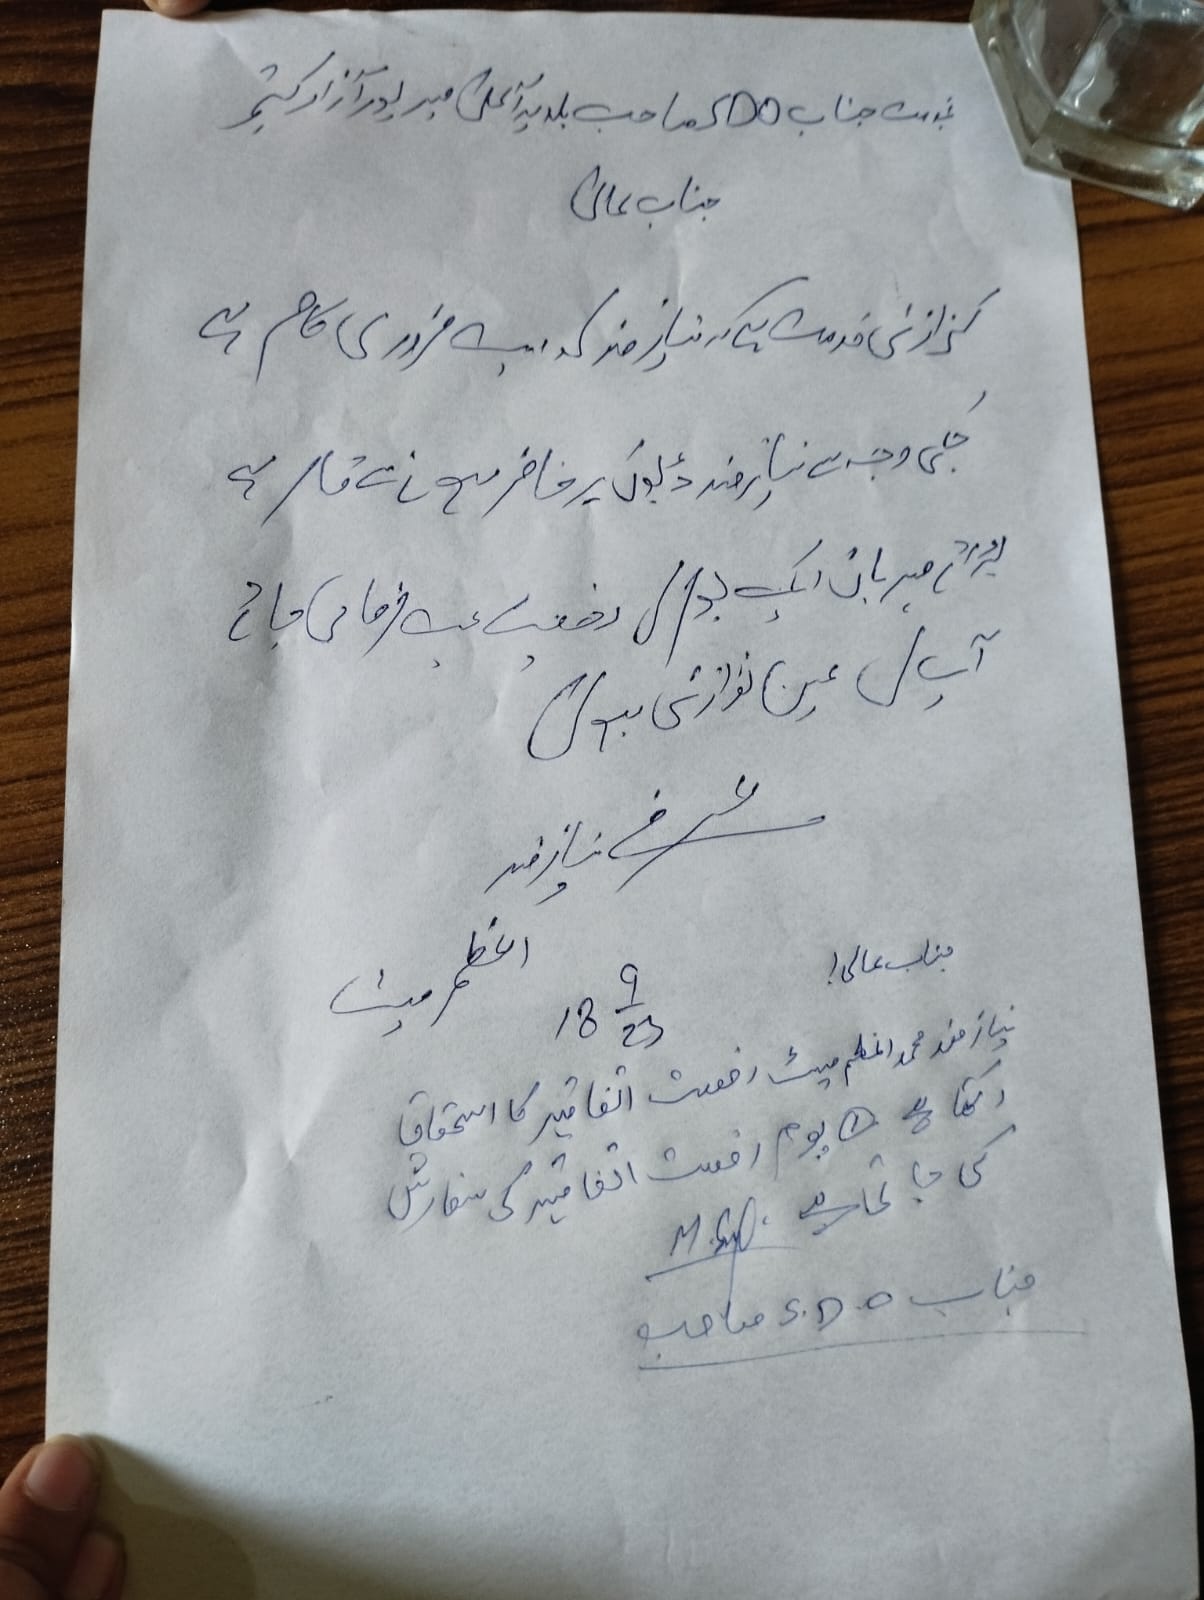 بخدمت جناب SDO صاحب بلدیہ اعلیٰ میر پور آزاد کشمیر
جناب عالی
گزارش خدمت ہے کہ نیاز مند کو ایک ضروری کام ہے
جسکی وجہ سے نیاز مند ڈیوٹی پر حاضر ہونے سے قاصر ہے
برائے مہربانی ایک یوم کی رخصت عنایت فرمائی جائے
آپ کی عین نوازش ہو گی
عرضے نیاز مند
اعظم میٹ
18 9/23
جناب عالی!
نیاز مند محمد اعظم میٹ رخصت اتفاقیہ کا استحقاق
رکھتا ہے 1 یوم رخصت اتفاقیہ کی سفارش
کی جاتی ہے
جناب S.D.O صاحب